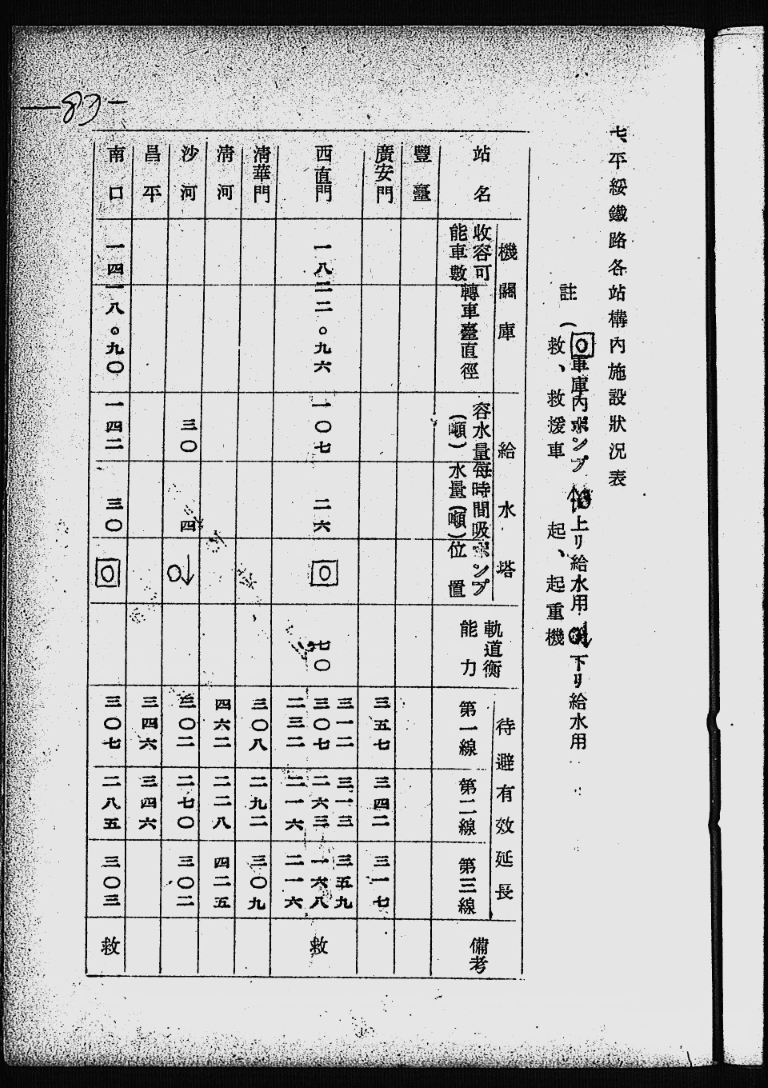 七、平綏鐵路各站構內施設狀況表
註(○車庫內ポンプ 上リ給水用 下リ給水用
救、救援車 起、起重機
站名 機關庫 收容可能車數 轉車臺直徑 給水塔 容水量(噸) 每時間吸水量(噸) ポンプ位置 軌道衡能力 待避有效延長 第一線 第二線 第三線 備考
豐臺
廣安門 三五七 三四二 三一七
西直門 一八 二二。九六 一〇七 二六 ○ 七〇 三一二 三一三 三五九
三〇七 二六三 一六八 救
二三二 二一六 二一六
淸華門 三〇八 二九二 三〇九
淸河 四六二 二二八 四二五
沙河 三〇 四 ○↓ 三〇二 二七〇 三〇二
昌平 三四六 三四六
南口 一四 一八。九〇 一四二 三〇 ○ 三〇七 二八五 三〇三 救
—83—